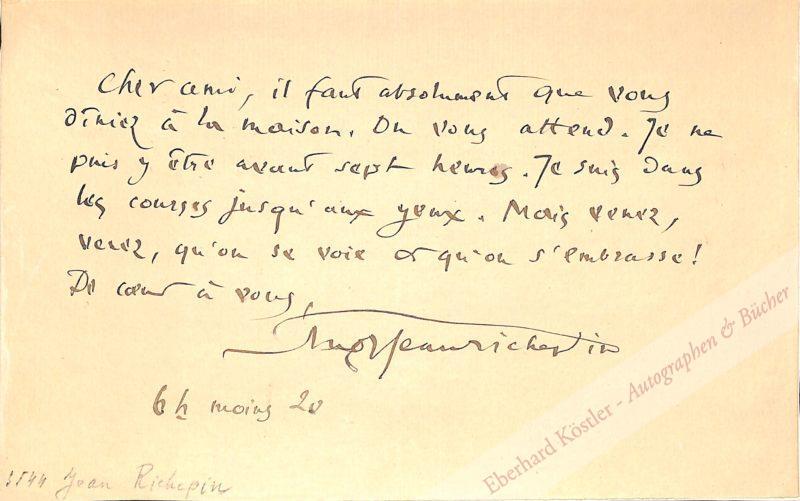 Cher ami, il faut absolument que vous
dîniez à la maison. On vous attend. Je ne
puis y être avant sept heures. Je suis dans
les courses jusqu'aux yeux. Mais venez,
venez, qu'on se voie et qu'on s'embrasse!
De cœur à vous,
Jean Richepin
6 h moins 20
Jean Richepin
Eberhard Köstler - Autographen & Bücher